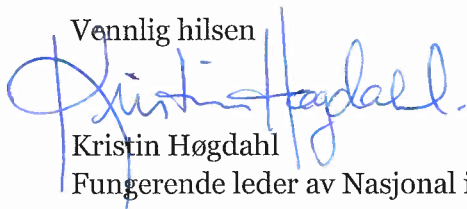 Vennlig hilsen
Kristin Høgdahl.
Kristin Høgdahl
Fungerende leder av Nasjonal i